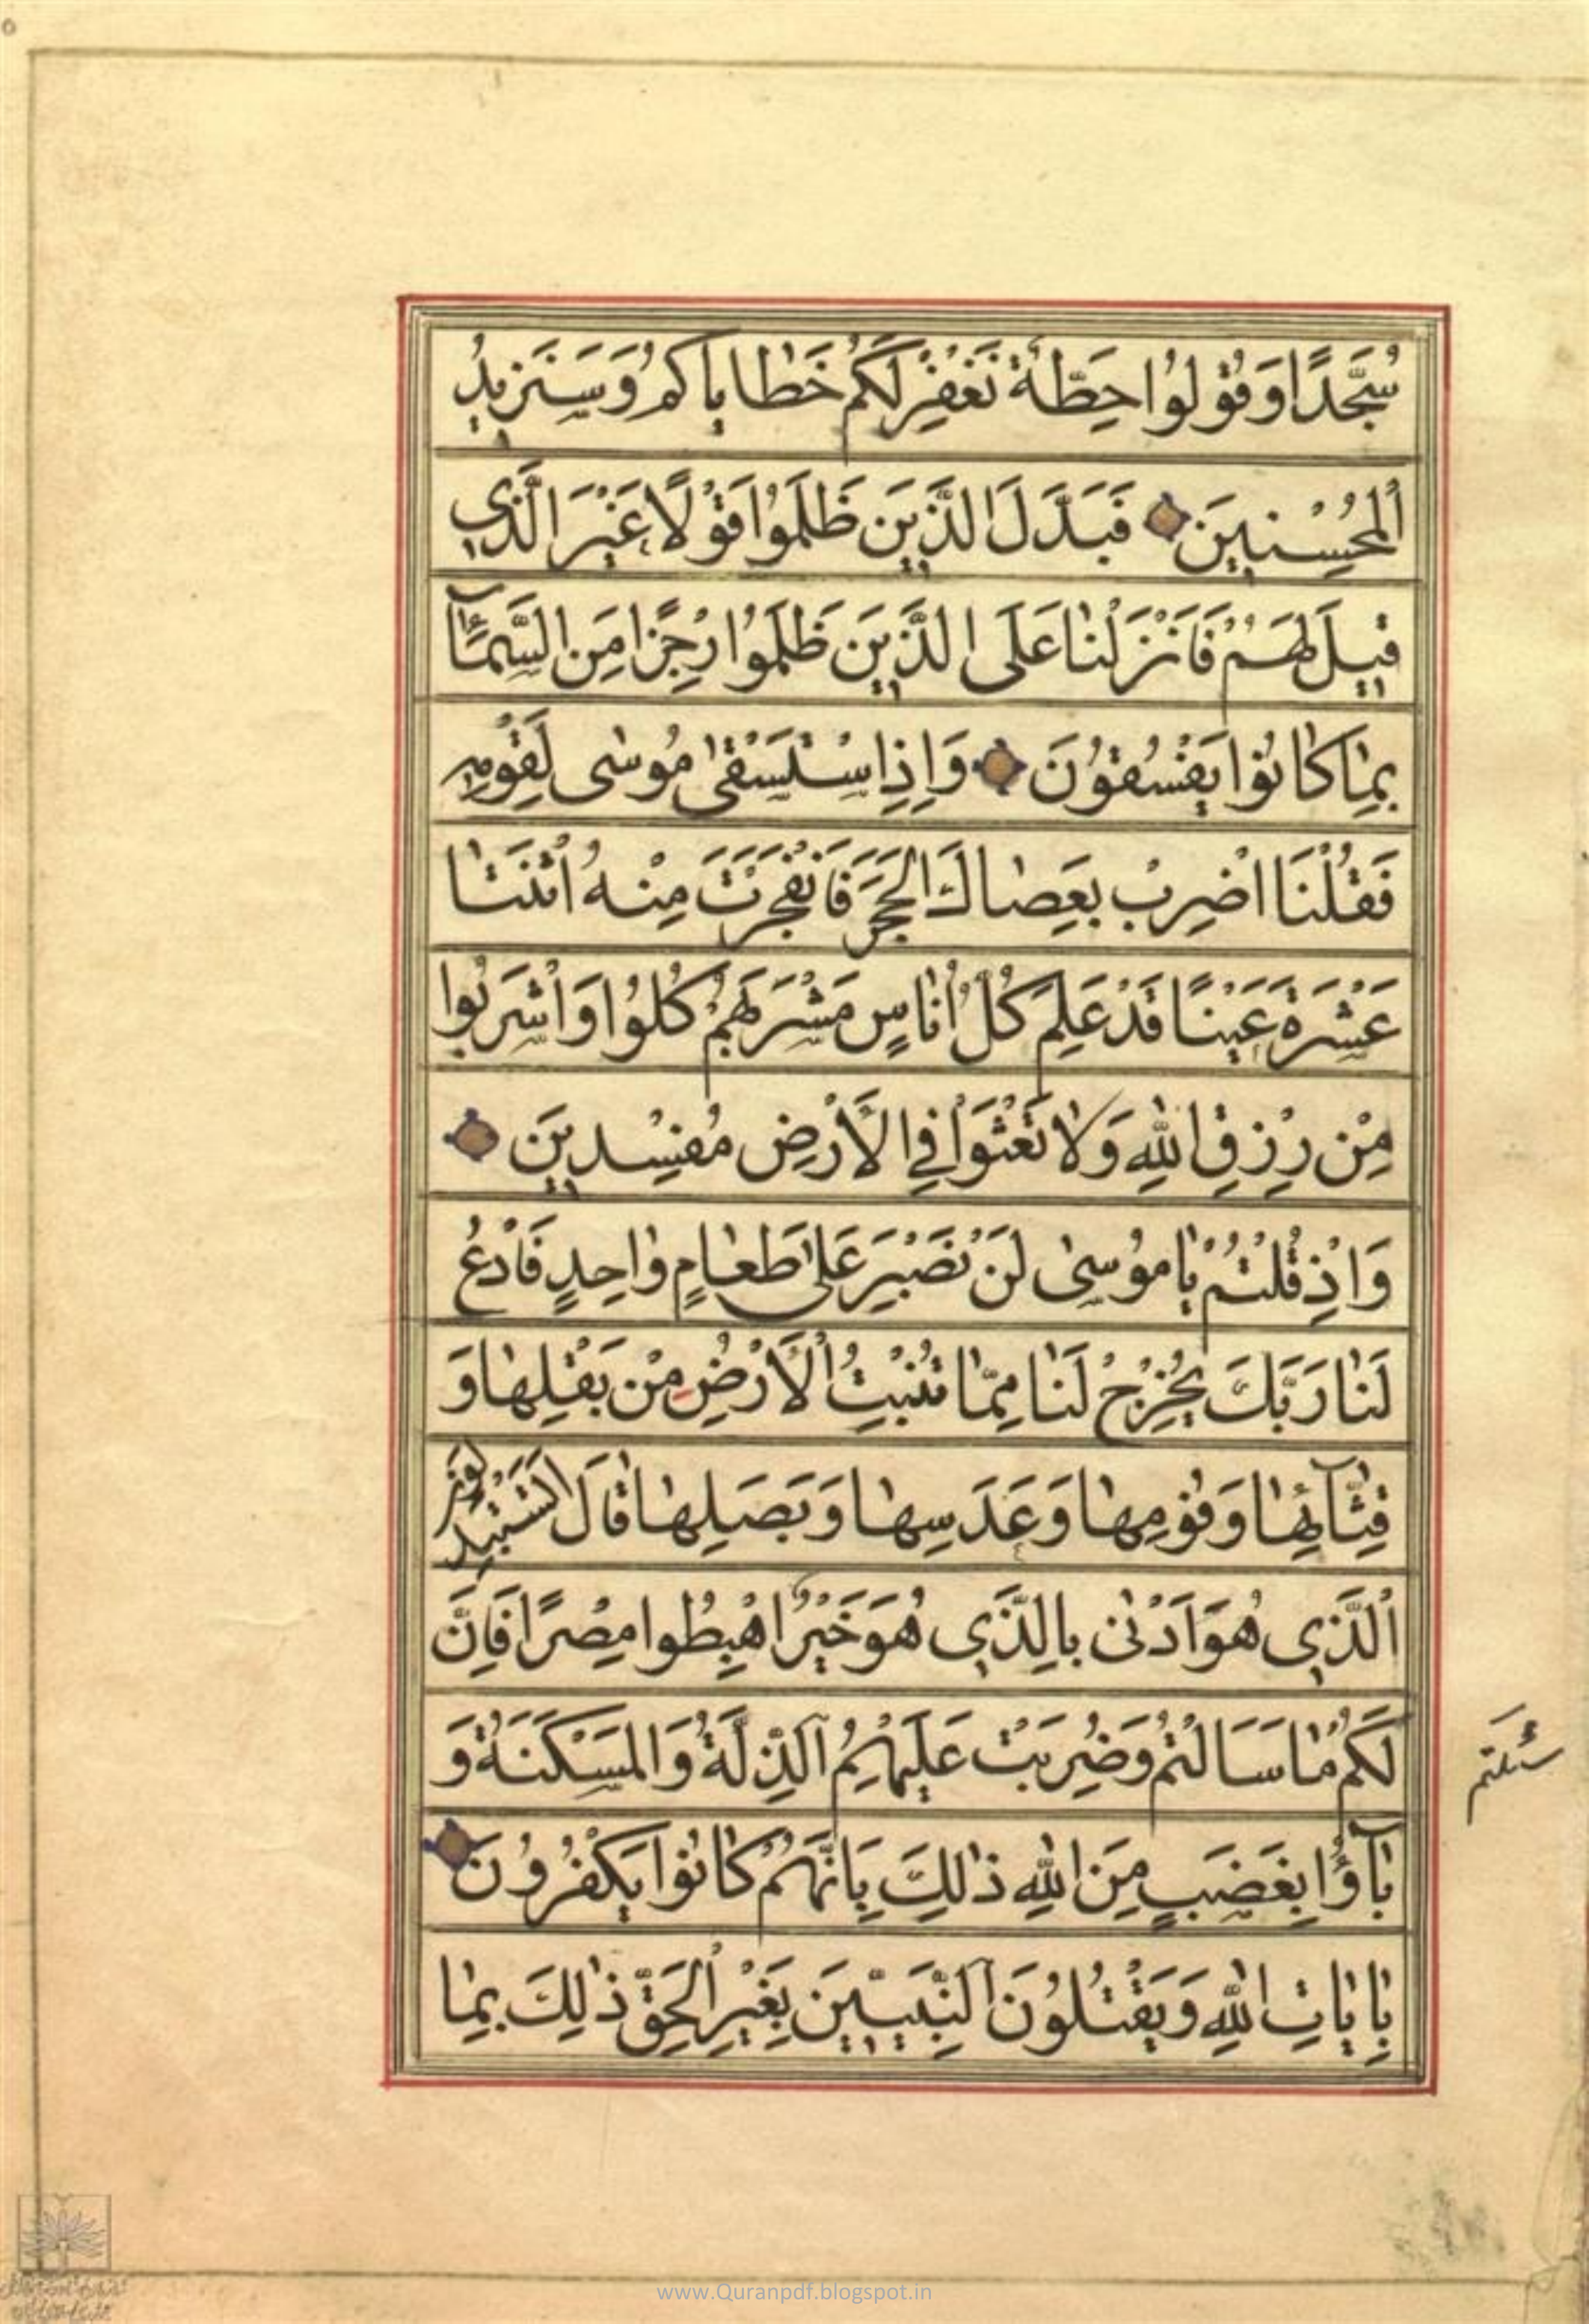 سُجَّدًا وَقُولُوا حِطَّةٌ نَغْفِرْ لَكُمْ خَطَايَاكُمْ وَسَنَزِيدُ
الْمُحْسِنِينَ فَبَدَّلَ الَّذِينَ ظَلَمُوا قَوْلًا غَيْرَ الَّذِي
قِيلَ لَهُمْ فَأَنْزَلْنَا عَلَى الَّذِينَ ظَلَمُوا رِجْزًا مِنَ السَّمَآءِ
بِمَا كَانُوا يَفْسُقُونَ وَإِذِ اسْتَسْقَى مُوسَى لِقَوْمِهِ
فَقُلْنَا اضْرِبْ بِعَصَاكَ الْحَجَرَ فَانْفَجَرَتْ مِنْهُ اثْنَتَا
عَشْرَةَ عَيْنًا قَدْ عَلِمَ كُلُّ أُنَاسٍ مَشْرَبَهُمْ كُلُوا وَاشْرَبُوا
مِنْ رِزْقِ اللَّهِ وَلَا تَعْثَوْا فِي الْأَرْضِ مُفْسِدِينَ
وَإِذْ قُلْتُمْ يَا مُوسَى لَنْ نَصْبِرَ عَلَى طَعَامٍ وَاحِدٍ فَادْعُ
لَنَا رَبَّكَ يُخْرِجْ لَنَا مِمَّا تُنْبِتُ الْأَرْضُ مِنْ بَقْلِهَا وَ
قِثَّآئِهَا وَفُومِهَا وَعَدَسِهَا وَبَصَلِهَا قَالَ أَتَسْتَبْدِلُونَ
الَّذِي هُوَ أَدْنَى بِالَّذِي هُوَ خَيْرٌ اهْبِطُوا مِصْرًا فَإِنَّ
لَكُمْ مَا سَأَلْتُمْ وَضُرِبَتْ عَلَيْهِمُ الذِّلَّةُ وَالْمَسْكَنَةُ وَ
بَآؤُا بِغَضَبٍ مِنَ اللَّهِ ذَلِكَ بِأَنَّهُمْ كَانُوا يَكْفُرُونَ
بِايَاتِ اللَّهِ وَيَقْتُلُونَ النَّبِيِّينَ بِغَيْرِ الْحَقِّ ذَلِكَ بِمَا
سَئَلتم
www.Quranpdf.blogspot.in